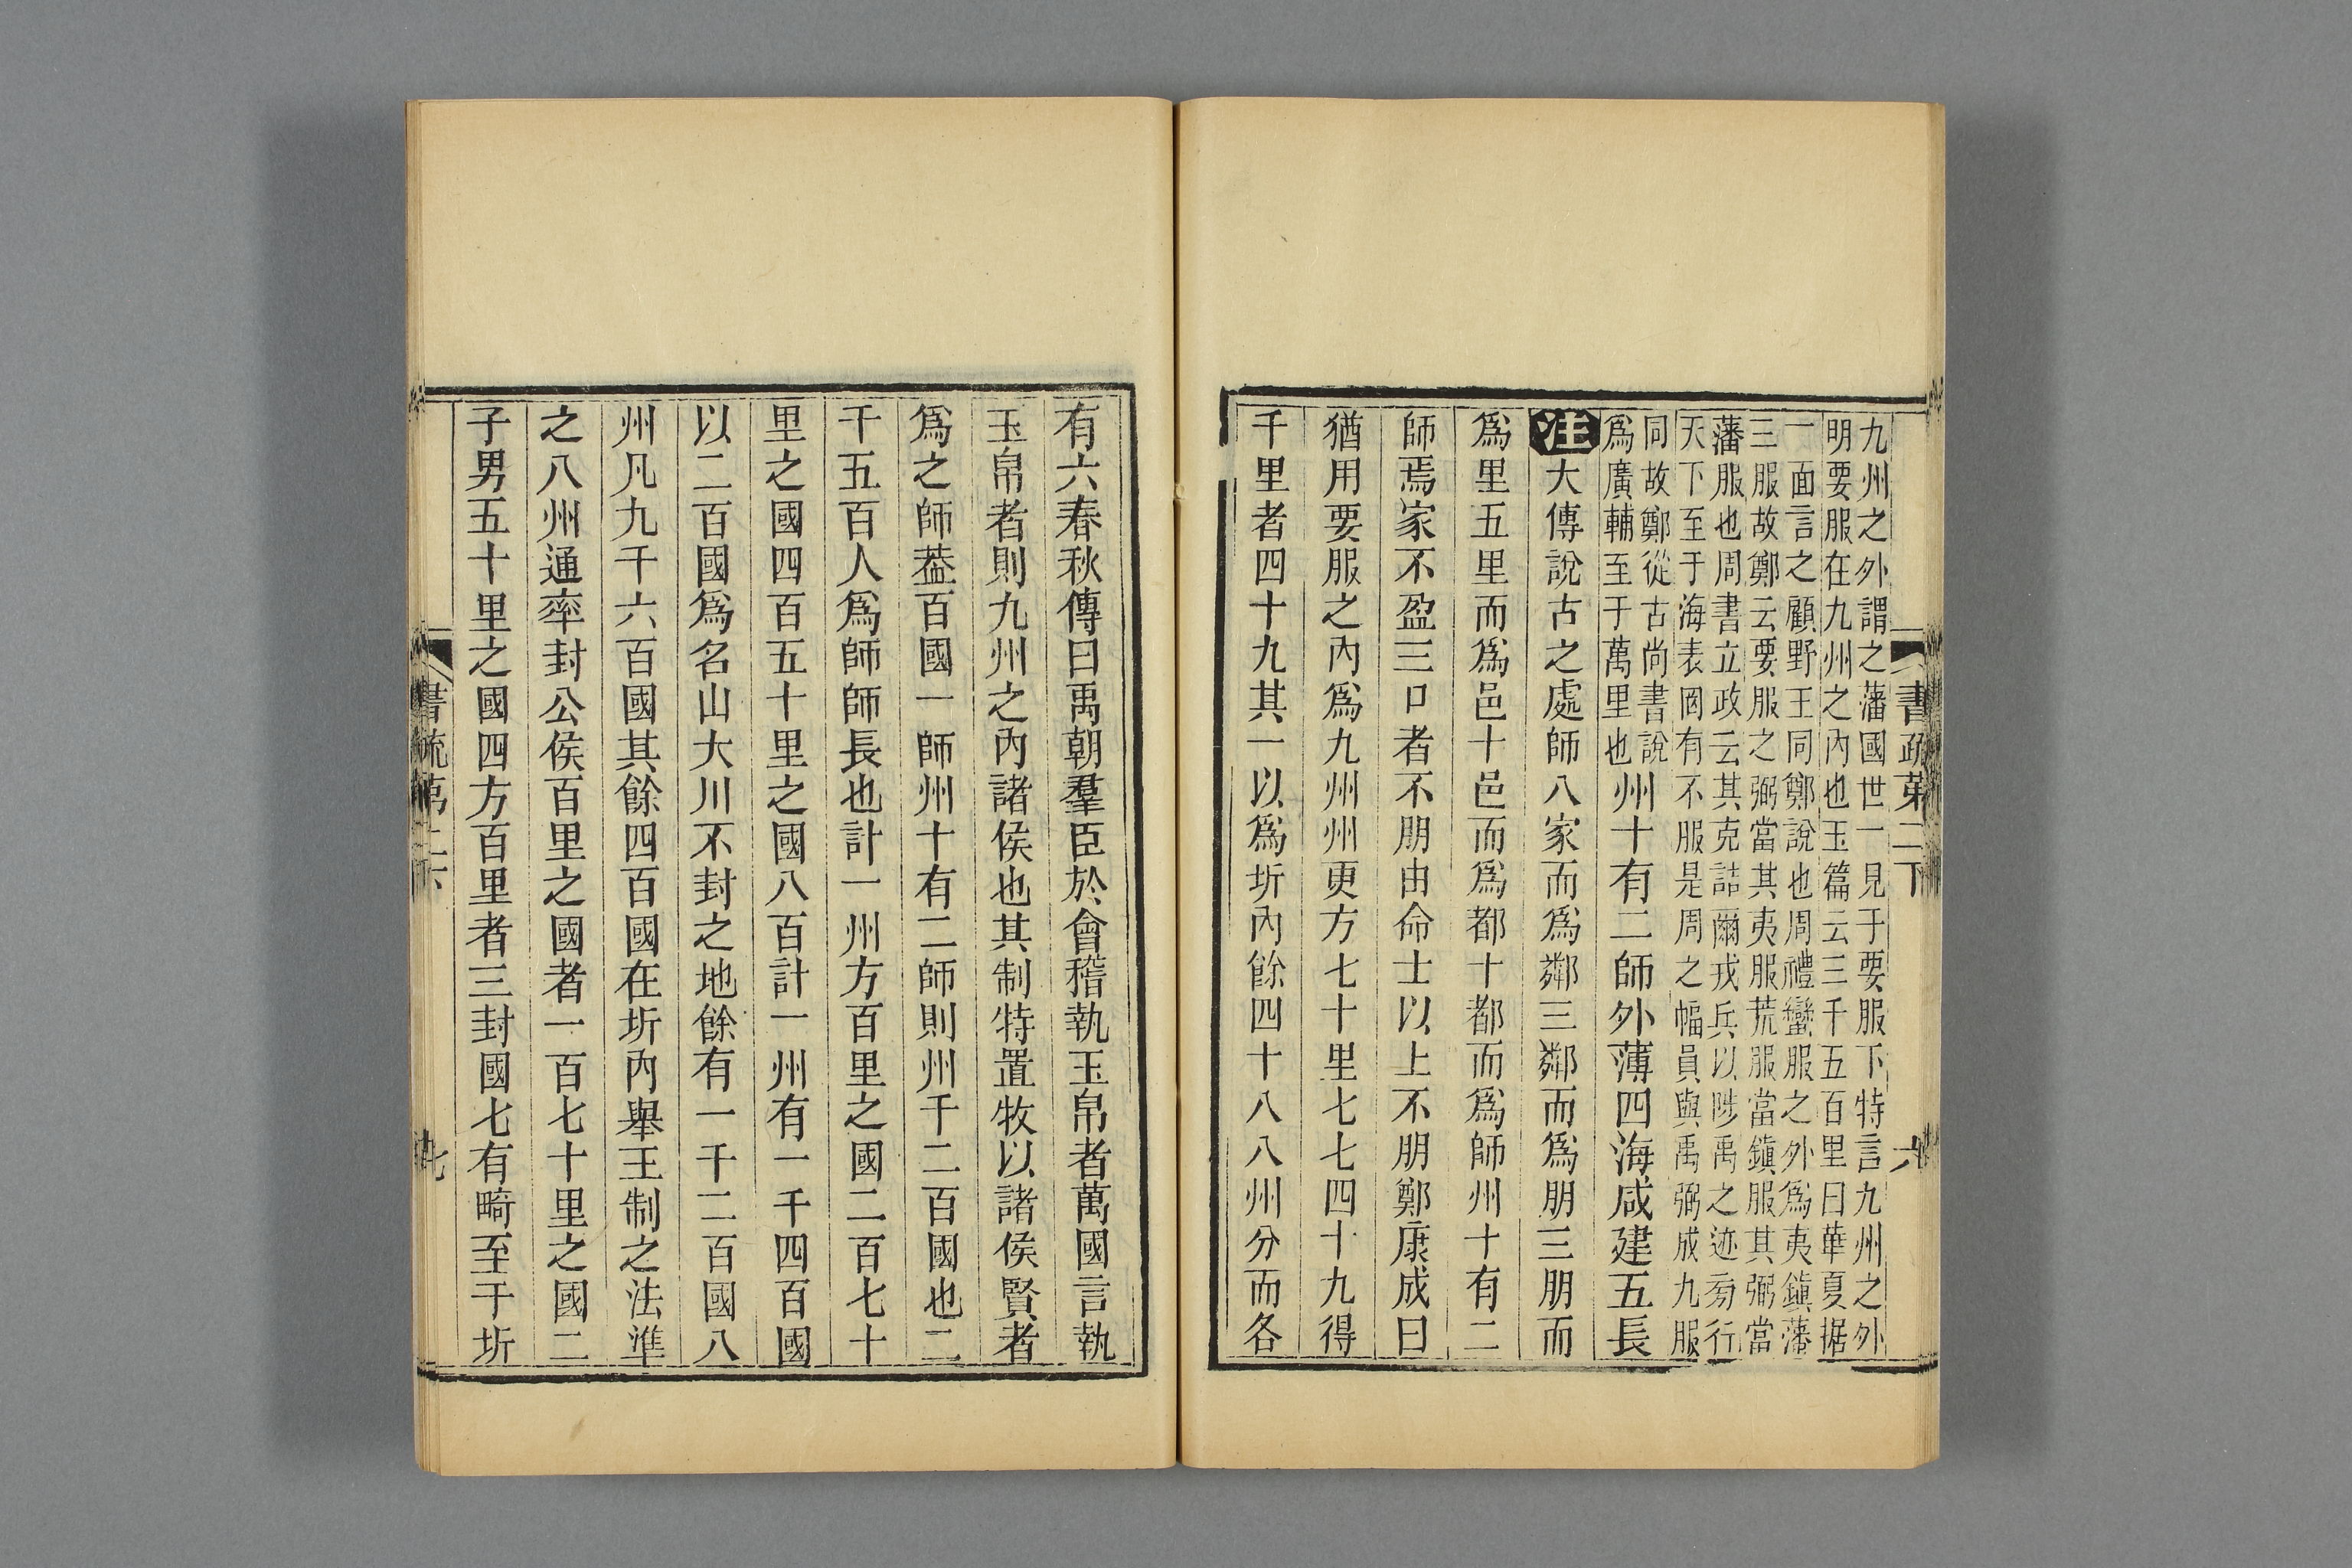 書疏第二下
六
九州之外謂之藩國世一見于要服下特言九州之外
明要服在九州之內也玉篇云三千五百里曰華夏据
一面言之顧野王同鄭說也周禮蠻服之外爲夷鎭藩
三服故鄭云要服之弼當其夷服荒服當鎭服其弼當
藩服也周書立政云其克詰爾戎兵以陟禹之迹𤰞行
天下至于海表罔有不服是周之幅員與禹弼成九服
同故鄭從古尚書說
爲廣輔至于萬里也
州十有二師外薄四海咸建五長
注大傳說古之處師八家而爲鄰三鄰而爲朋三朋而
爲里五里而爲邑十邑而爲都十都而爲師州十有二
師焉家不盈三口者不朋由命士以上不朋鄭康成曰
猶用要服之內爲九州州更方七十里七七四十九得
千里者四十九其一以爲圻內餘四十八八州分而各
有六春秋傳曰禹朝羣臣於會稽執玉帛者萬國言執
玉帛者則九州之內諸侯也其制特置牧以諸侯賢者
爲之師葢百國一師州十有二師則州千二百國也二
千五百人爲師師長也計一州方百里之國二百七十
里之國四百五十里之國八百計一州有一千四百國
以二百國爲名山大川不封之地餘有一千二百國八
州凡九千六百國其餘四百國在圻內舉王制之法準
之八州通率封公侯百里之國者一百七十里之國二
子男五十里之國四方百里者三封國七有畸至于圻
書疏第二下
七